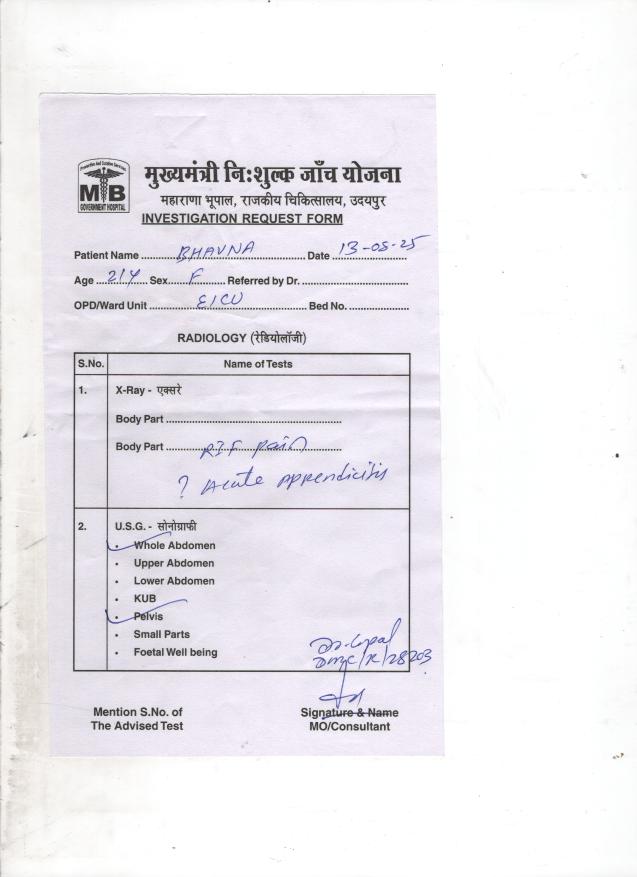 Promotive And Curative Services
MB
GOVERNMENT HOSPITAL
मुख्यमंत्री निःशुल्क जाँच योजना
महाराणा भूपाल, राजकीय चिकित्सालय, उदयपुर
INVESTIGATION REQUEST FORM
Patient Name BHAVNA Date 13-08-25
Age 21Y Sex F Referred by Dr.
OPD/Ward Unit EICU Bed No.
RADIOLOGY (रेडियोलॉजी)
S.No. Name of Tests
1. X-Ray - एक्सरे
Body Part
Body Part RIF pain
? Acute Appendicitis
2. U.S.G. - सोनोग्राफी
• Whole Abdomen
• Upper Abdomen
• Lower Abdomen
• KUB
• Pelvis
• Small Parts
• Foetal Well being
Dr. Gopal
DMC/R/28203
Mention S.No. of
The Advised Test
Signature & Name
MO/Consultant